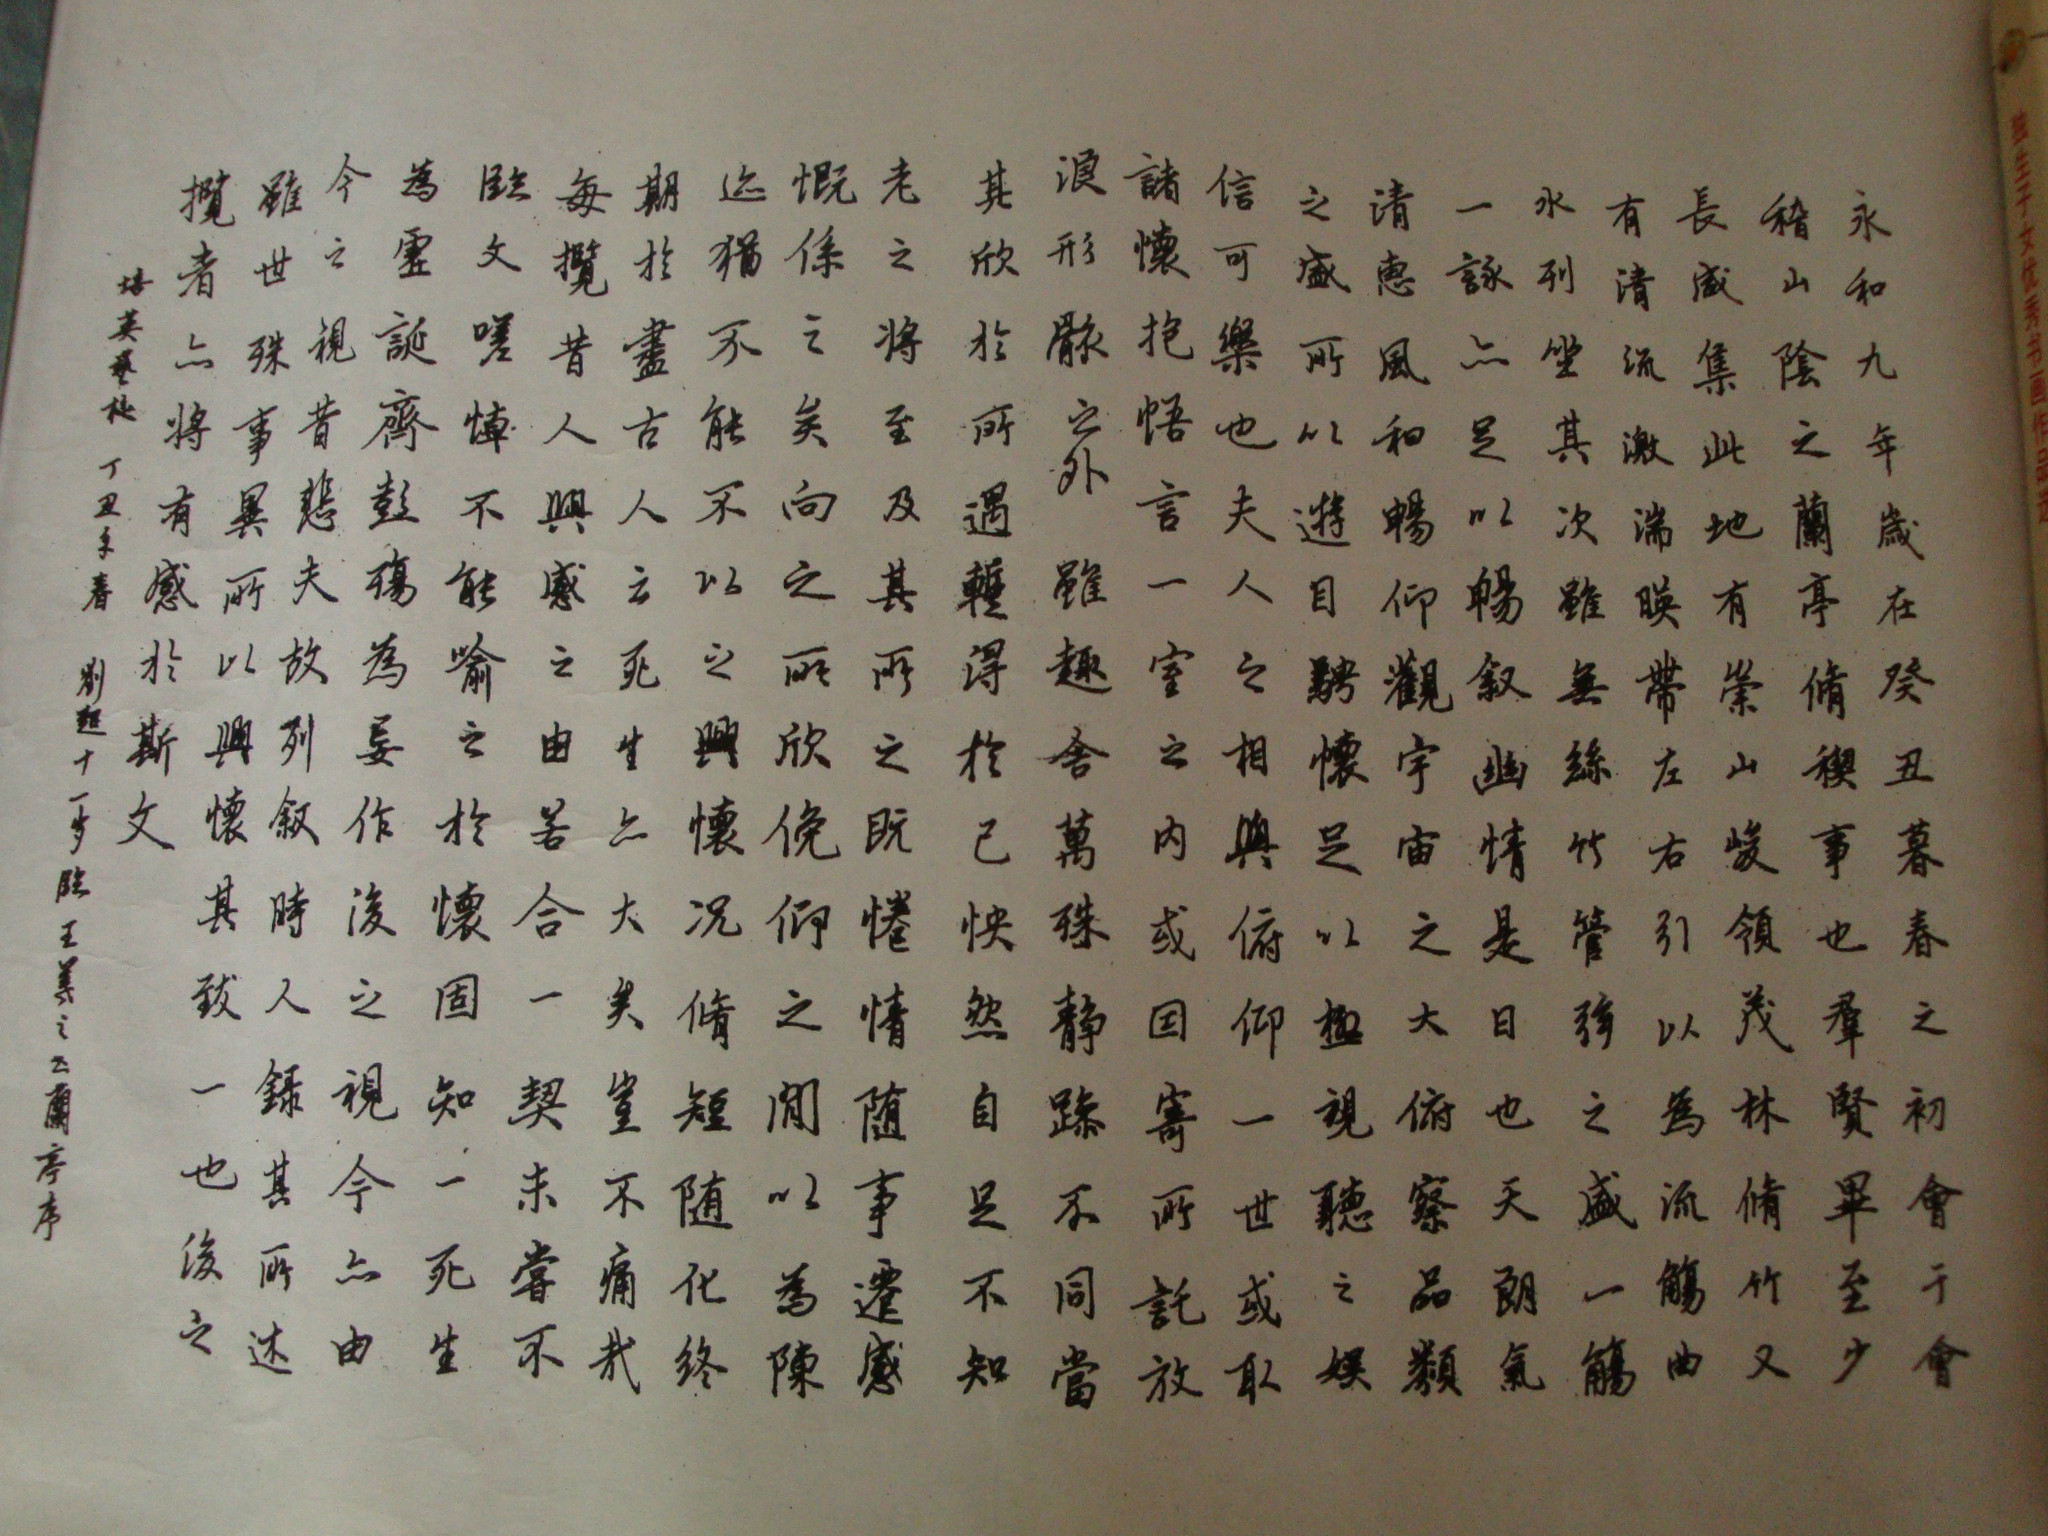 独生子女优秀书画作品选
永和九年歲在癸丑暮春之初會于會
稽山陰之蘭亭脩稧事也羣賢畢至少
長咸集此地有崇山峻領茂林脩竹又
有清流激湍暎帶左右引以為流觴曲
水列坐其次雖無絲竹管弦之盛一觴
一詠亦足以暢叙幽情是日也天朗氣
清惠風和暢仰觀宇宙之大俯察品類
之盛所以遊目騁懷足以極視聽之娛
信可樂也夫人之相與俯仰一世或取
諸懷抱悟言一室之內或因寄所託放
浪形骸之外雖趣舍萬殊靜躁不同當
其欣於所遇蹔得於己怏然自足不知
老之將至及其所之既惓情隨事遷感
慨係之矣向之所欣俛仰之閒以為陳
迹猶不能不以之興懷況脩短隨化終
期於盡古人云死生亦大矣豈不痛哉
每攬昔人興感之由若合一契未嘗不
臨文嗟悼不能喻之於懷固知一死生
為虛誕齊彭殤為妄作後之視今亦由
今之視昔悲夫故列叙時人錄其所述
雖世殊事異所以興懷其致一也後之
攬者亦將有感於斯文
培英藝校 丁丑年春 劉超十一岁臨王羲之之蘭亭序